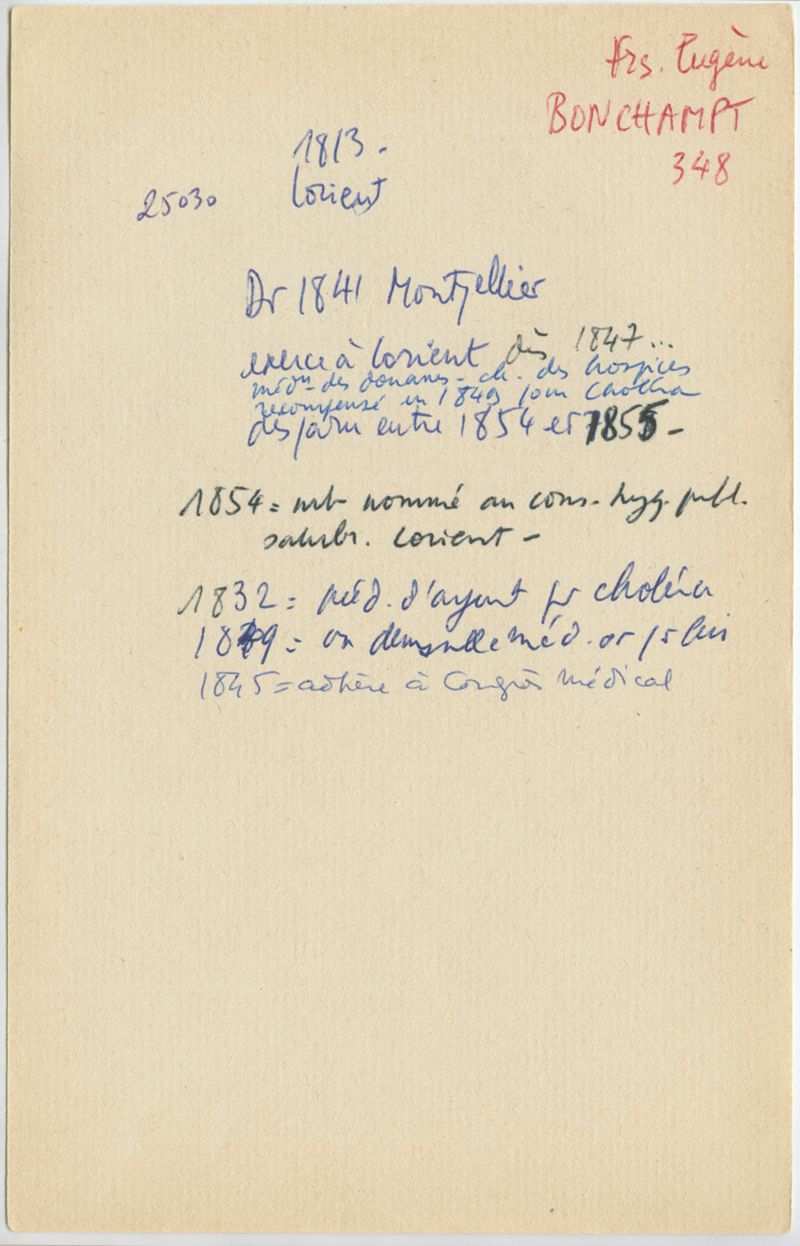 Frs. Eugène
BONCHAMPT
348
1813 -
Lorient
25030
Dr 1841 Montpellier
exerce à Lorient dès 1847...
médn des douanes - ch. des hospices
recompensé en 1849 pour choléra
disparu entre 1854 et 1855 -
1854 = mb nommé au cons. hyg. publ.
salubr. Lorient -
1832 = méd. d'argent pr choléra
1849 = on demande méd. or pr lui
1845 = adhère à Congrès médical